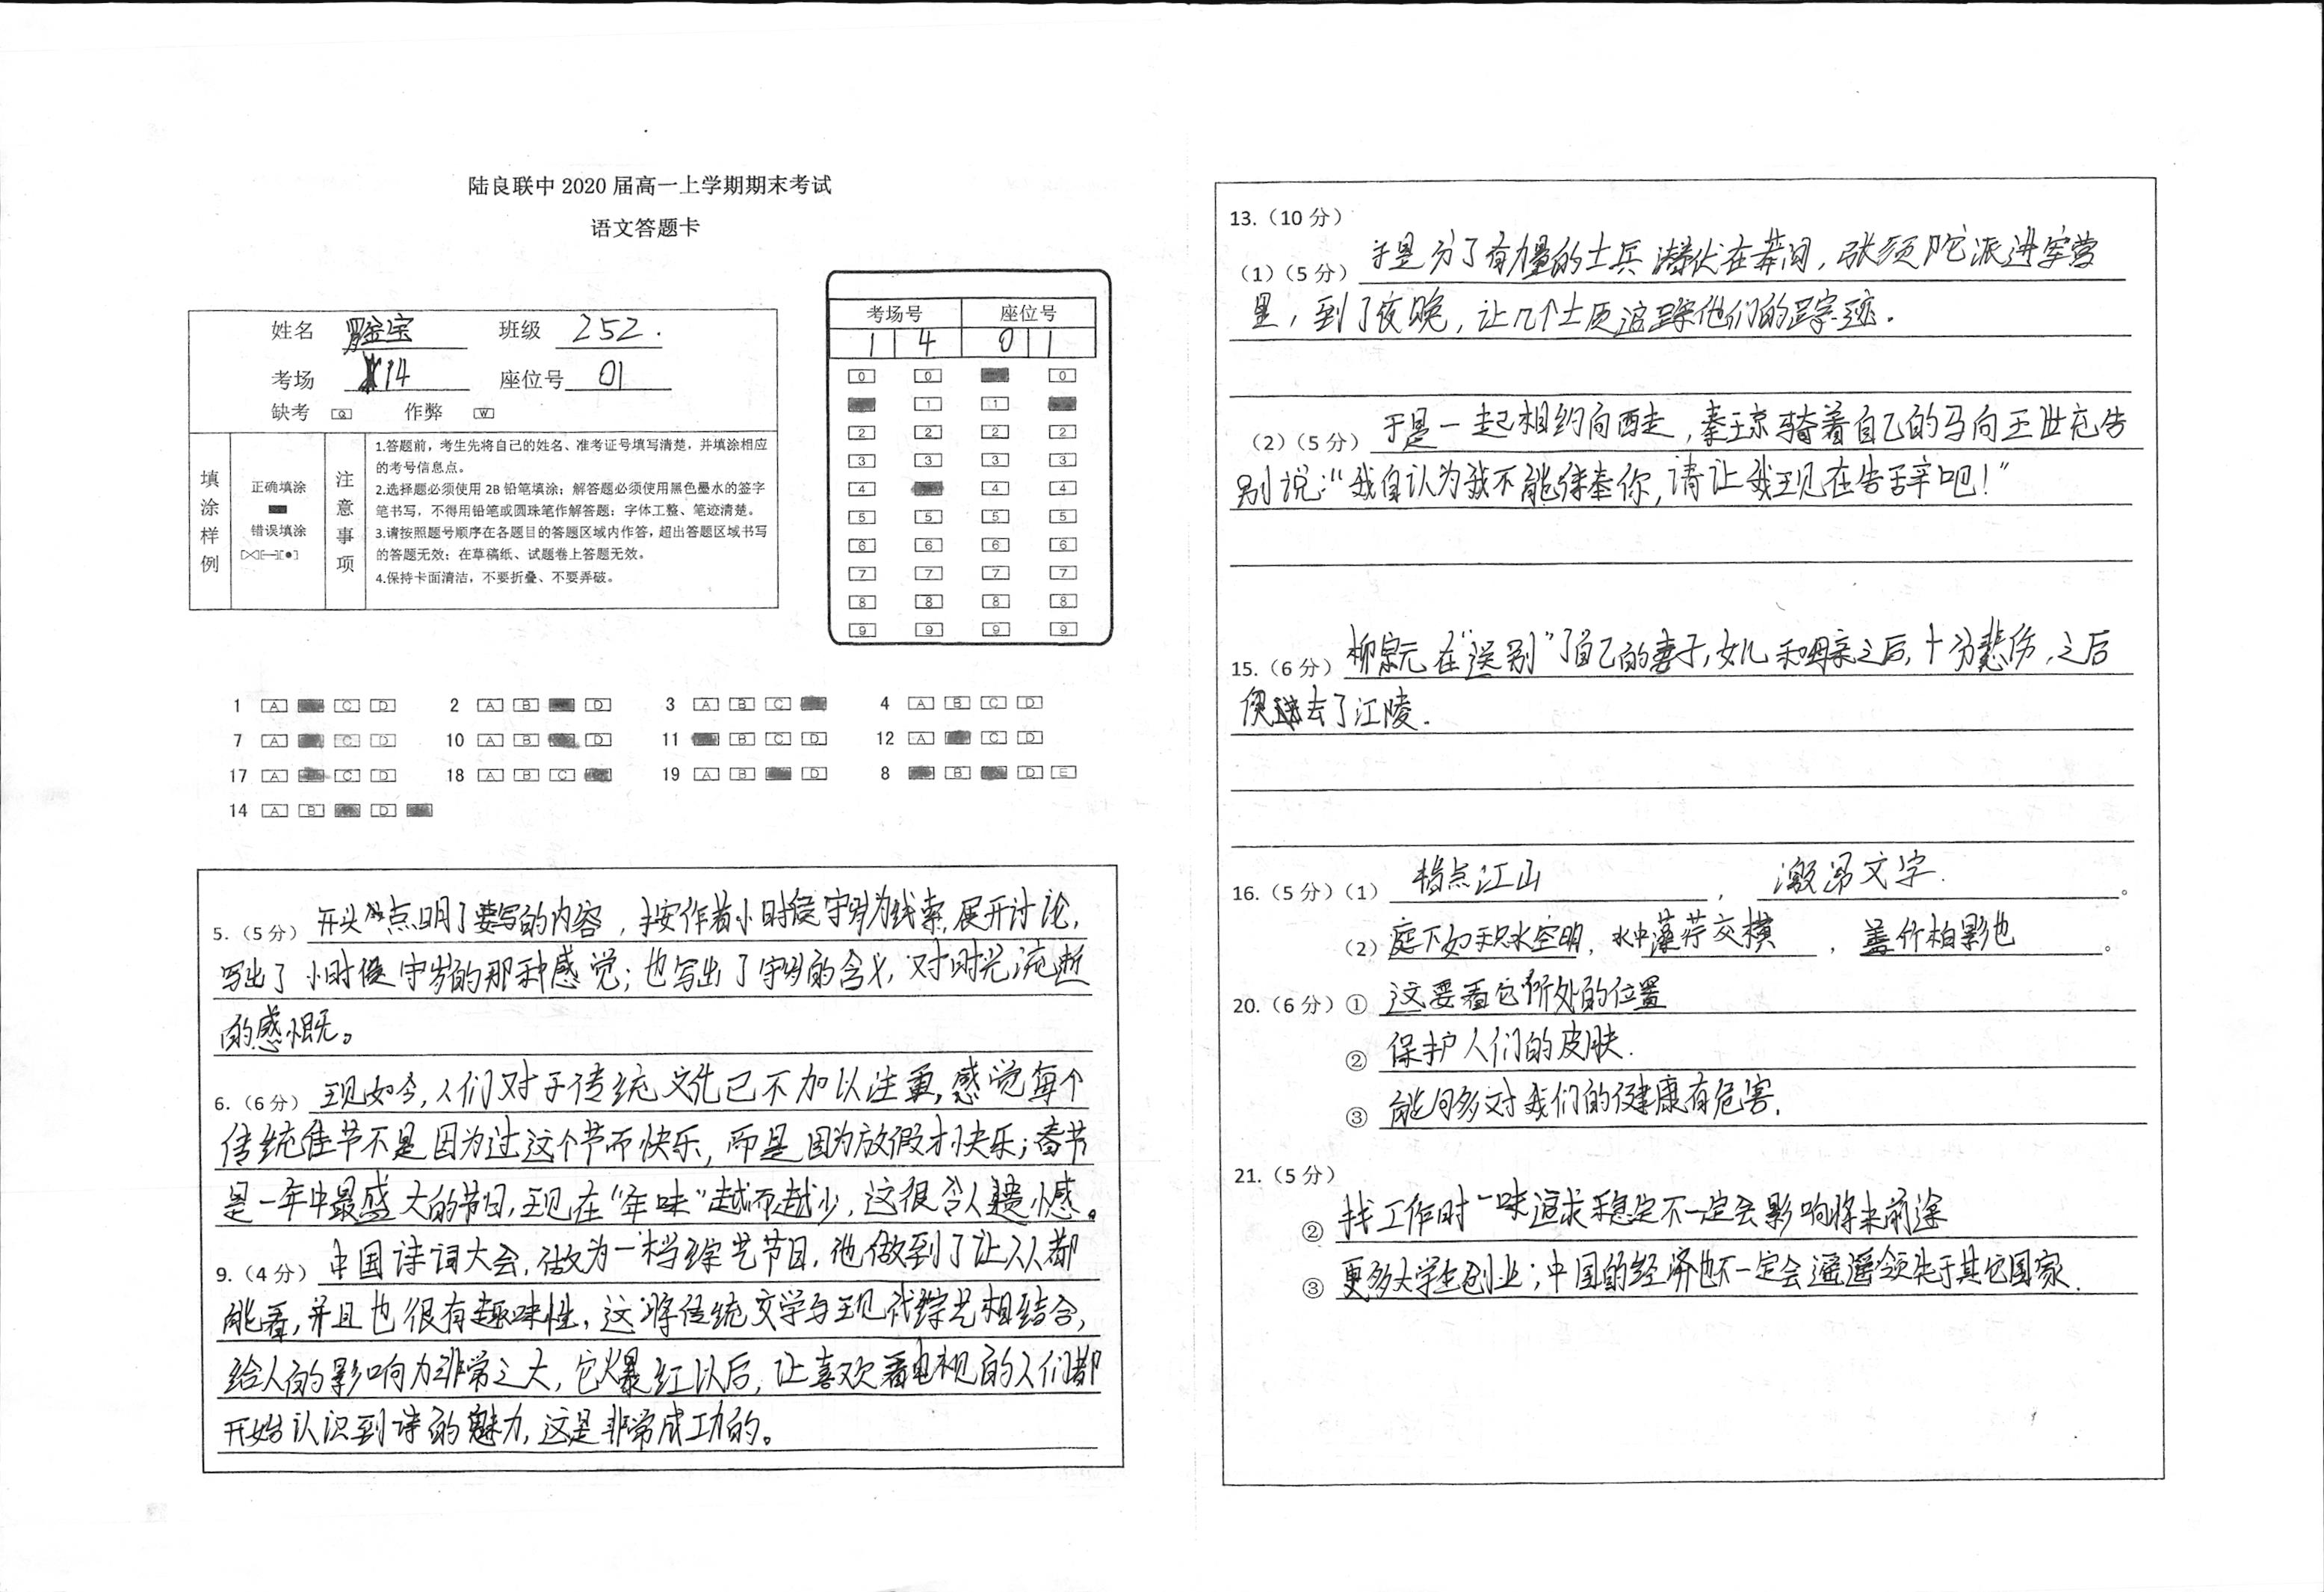 陆良联中 2020 届高一上学期期末考试
语文答题卡
姓名 宝 班级 252.
考场 14 座位号 01
缺考 [Q] 作弊 [W]
填涂样例
正确填涂
错误填涂
注意事项
1.答题前，考生先将自己的姓名、准考证号填写清楚，并填涂相应
的考号信息点。
2.选择题必须使用 2B 铅笔填涂；解答题必须使用黑色墨水的签字
笔书写，不得用铅笔或圆珠笔作解答题；字体工整、笔迹清楚。
3.请按照题号顺序在各题目的答题区域内作答，超出答题区域书写
的答题无效；在草稿纸、试题卷上答题无效。
4.保持卡面清洁，不要折叠、不要弄破。
考场号 座位号
1 4 0 1
0 0 0
1 1
2 2 2 2
3 3 3 3
4 4 4
5 5 5 5
6 6 6 6
7 7 7 7
8 8 8 8
9 9 9 9
1 A C D 2 A B D 3 A B C 4 A B C D
7 A C D 10 A B D 11 B C D 12 A C D
17 A C D 18 A B C 19 A B D 8 B D E
14 A B D
5.（5 分）开头点明了要写的内容，按作者小时候守岁为线索，展开讨论，
写出了小时候守岁的那种感觉；也写出了守岁的含义，对时光流逝
的感慨。
6.（6 分）现如今，人们对于传统文化已不加以注重，感觉每个
传统佳节不是因为过这个节而快乐，而是因为放假才快乐；春节
是一年中最盛大的节日，现在“年味”越来越少，这很令人遗憾。
9.（4 分）中国诗词大会，做为一档综艺节目，他做到了让人人都
能看，并且也很有趣味性，这将传统文学与现代综艺相结合，
给人的影响力非常之大，它爆红以后，让喜欢看电视的人们都
开始认识到诗的魅力，这是非常成功的。
13.（10 分）
（1）（5 分）于是分了有力量的士兵潜伏在莽间，张须陀派进军营
里，到了夜晚，让几个士兵追踪他们的踪迹.
（2）（5 分）于是一起相约向西走，秦琼骑着自己的马向王世充告
别说：“我自认为我不能侍奉你，请让我现在告辞吧！”
15.（6 分）柳宗元在“送别”了自己的妻子，女儿和母亲之后，十分悲伤，之后
便去了江陵.
16.（5 分）（1）指点江山，激昂文字.。
（2）庭下如积水空明，水中藻荇交横，盖竹柏影也。
20.（6 分）① 这要看它所处的位置
② 保护人们的皮肤.
③ 能间多对我们的健康有危害.
21.（5 分）
② 找工作时一味追求稳定不一定会影响将来前途
③ 更多大学生创业；中国的经济也不一定会遥遥领先于其它国家.